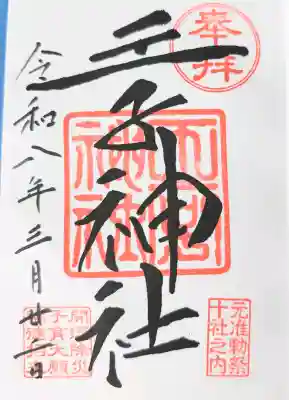 奉拝
王子神社
王子神社
元准勅祭
十社之内
令和八年三月廿日
開運除災
子育大願